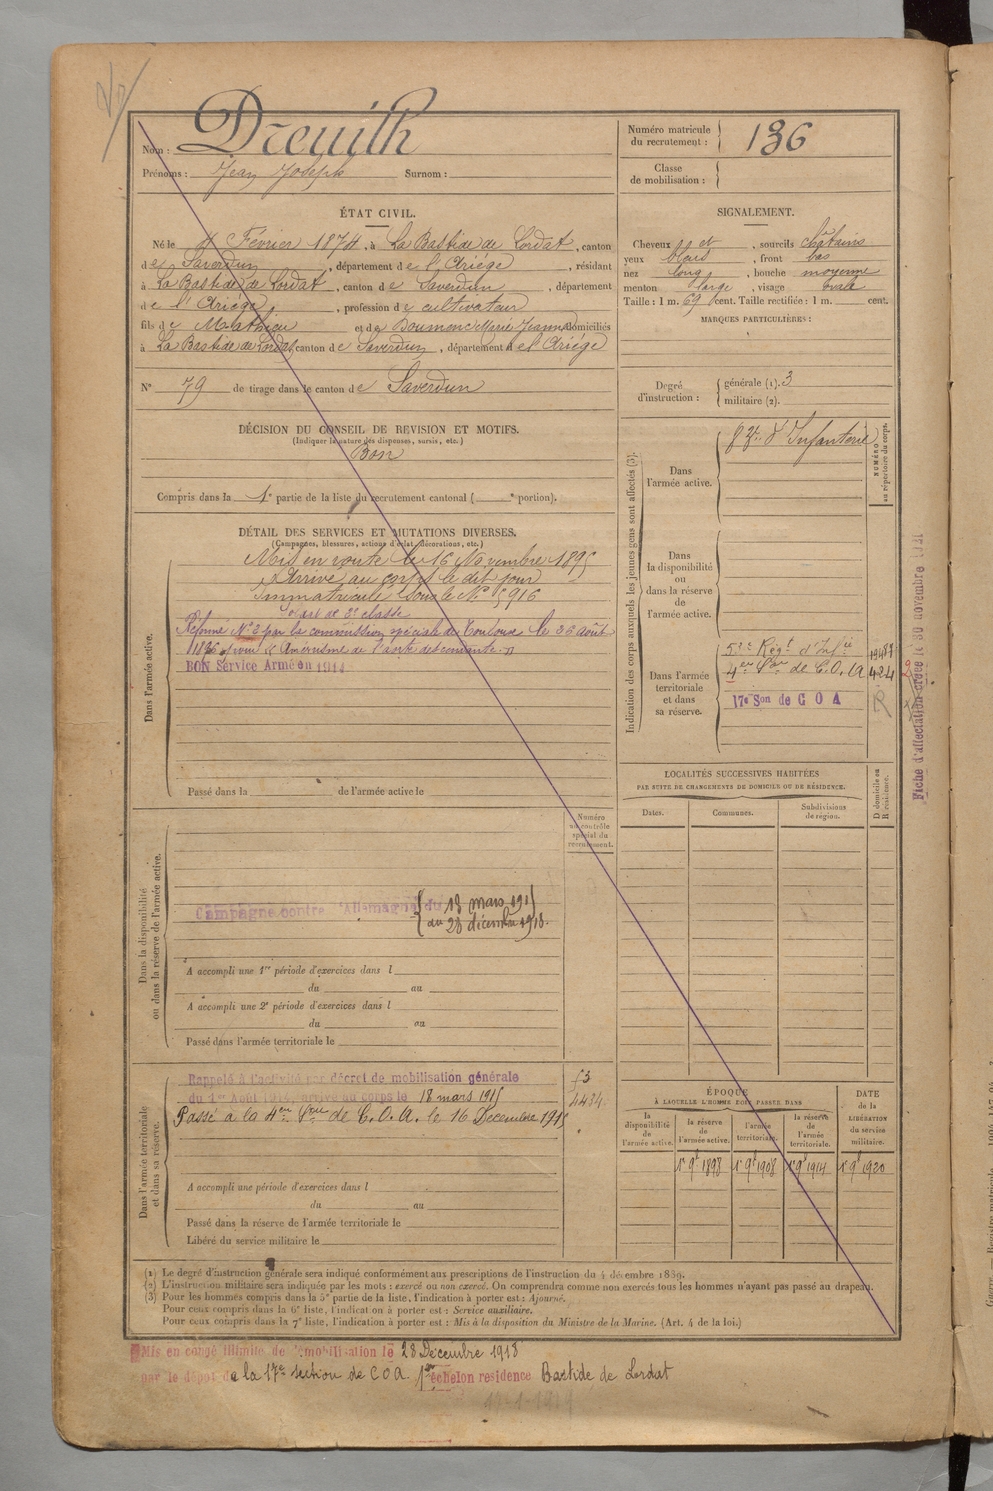 Nom : Dreuilh
Prénoms : Jean Joseph Surnom :
Numéro matricule du recrutement : 136
Classe de mobilisation :
ÉTAT CIVIL.
Né le 4 Février 1874, à La Bastide de Lordat, canton
de Saverdun, département de l'Ariége, résidant
à La Bastide de Lordat, canton de Saverdun, département
de l'Ariége, profession de cultivateur
fils de Mathieu et de Doumenc Marie Jeanne domiciliés
à La Bastide de Lordat, canton de Saverdun, département de l'Ariége
N° 79 de tirage dans le canton de Saverdun
DÉCISION DU CONSEIL DE REVISION ET MOTIFS.
(Indiquer la nature des dispenses, sursis, etc.)
Bon
Compris dans la 1e partie de la liste du recrutement cantonal ( e portion).
SIGNALEMENT.
Cheveux et, sourcils châtains
yeux bleus, front bas
nez long, bouche moyenne
menton large, visage ovale
Taille : 1 m. 69 cent. Taille rectifiée : 1 m. cent.
MARQUES PARTICULIÈRES :
Degré d'instruction : générale (1). 3
militaire (2).
DÉTAIL DES SERVICES ET MUTATIONS DIVERSES.
(Campagnes, blessures, actions d'éclat, décorations, etc.)
Dans l'armée active.
Mis en route le 16 Novembre 1895
Arrivé au corps le dit jour
Immatriculé sous le N° 5916
soldat de 2e classe
Réformé N° 2 par la commission spéciale de Toulouse le 26 août
1896 pour « Anévrisme de l'aorte descendante. »
BON Service Armé en 1914
Passé dans la de l'armée active le
Indication des corps auxquels les jeunes gens sont affectés (3).
NUMÉRO au répertoire du corps.
Dans l'armée active.
d'Infanterie
Dans la disponibilité ou dans la réserve de l'armée active.
Dans l'armée territoriale et dans sa réserve.
Régt d'Infie
4e Son de C.O.A 424
17e Son de C O A
Fiche d'affectation créée le 30 novembre 1921
LOCALITÉS SUCCESSIVES HABITÉES
PAR SUITE DE CHANGEMENTS DE DOMICILE OU DE RÉSIDENCE.
D domicile ou R résidence.
Dates. Communes. Subdivisions de région.
Dans la disponibilité ou dans la réserve de l'armée active.
Numéro au contrôle spécial du recrutement.
Campagne contre l'Allemagne du 18 mars 1915
au 28 décembre 1918.
A accompli une 1re période d'exercices dans l
du au
A accompli une 2e période d'exercices dans l
du au
Passé dans l'armée territoriale le
Dans l'armée territoriale et dans sa réserve.
Rappelé à l'activité par décret de mobilisation générale
du 1er Août 1914, arrivé au corps le 18 mars 1915
Passé à la 4e Son de C.O.A. le 16 Décembre 1915
A accompli une période d'exercices dans l
du au
Passé dans la réserve de l'armée territoriale le
Libéré du service militaire le
ÉPOQUE
À LAQUELLE L'HOMME DOIT PASSER DANS
la disponibilité de l'armée active. la réserve de l'armée active. l'armée territoriale. la réserve de l'armée territoriale.
DATE de la LIBÉRATION du service militaire.
1er 9bre 1898 1er 9bre 1908 1er 9bre 1914 1er 9bre 1920
(1) Le degré d'instruction générale sera indiqué conformément aux prescriptions de l'instruction du 4 décembre 1889.
(2) L'instruction militaire sera indiquée par les mots : exercé ou non exercé. On comprendra comme non exercés tous les hommes n'ayant pas passé au drapeau.
(3) Pour les hommes compris dans la 5e partie de la liste, l'indication à porter est : Ajourné.
Pour ceux compris dans la 6e liste, l'indication à porter est : Service auxiliaire.
Pour ceux compris dans la 7e liste, l'indication à porter est : Mis à la disposition du Ministre de la Marine. (Art. 4 de la loi.)
Mis en congé illimité de démobilisation le 28 Décembre 1918
par le dépôt de la 17e section de COA 1er échelon residence Bastide de Lordat